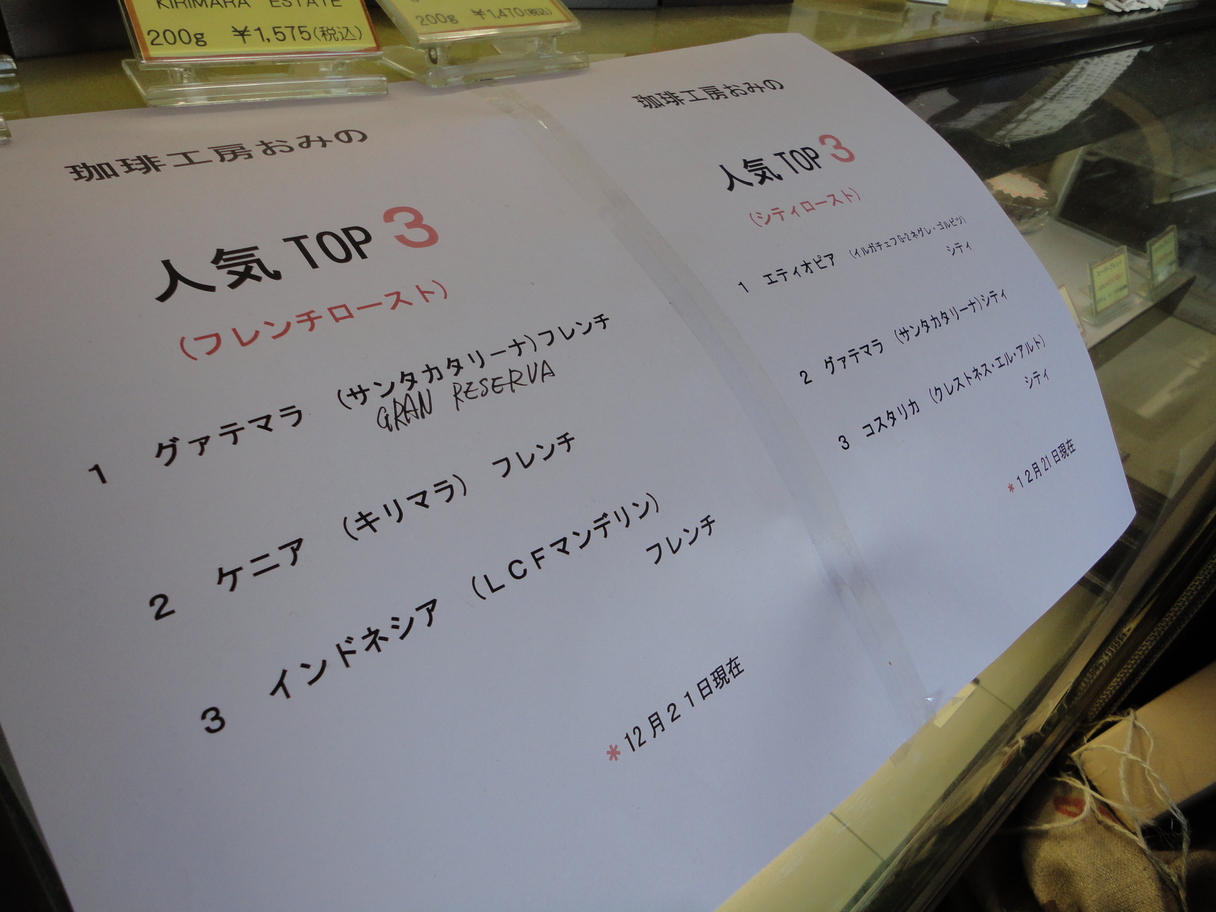 KIRIMARA ESTATE
200g ¥1,575(税込)
200g ¥1,470(税込)
珈琲工房おみの
人気 TOP 3
(フレンチロースト)
1 グァテマラ (サンタカタリーナ)フレンチ
GRAN RESERVA
2 ケニア (キリマラ) フレンチ
3 インドネシア (LCFマンデリン)
フレンチ
*12月21日現在
珈琲工房おみの
人気 TOP 3
(シティロースト)
1 エティオピア (イルガチェフG-2ネグレ・ゴルビツ)
シティ
2 グァテマラ (サンタカタリーナ)シティ
3 コスタリカ (クレストネス・エル・アルト)
シティ
*12月21日現在